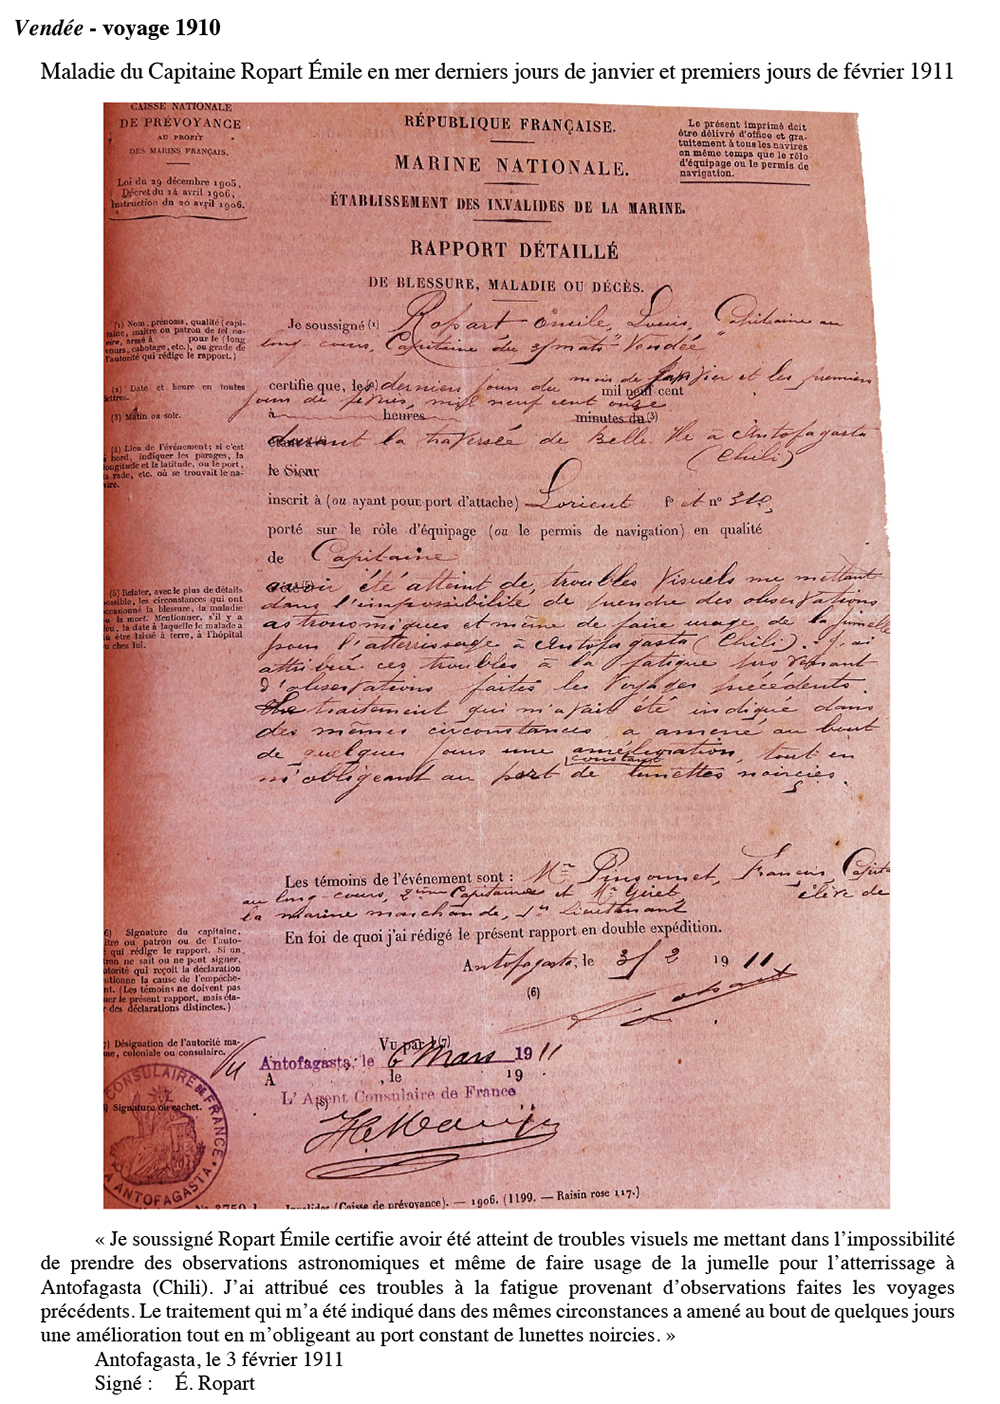 Vendée - voyage 1910
Maladie du Capitaine Ropart Émile en mer derniers jours de janvier et premiers jours de février 1911
CAISSE NATIONALE
DE PRÉVOYANCE
AU PROFIT
DES MARINS FRANÇAIS.
Loi du 29 décembre 1905,
Décret du 14 avril 1906,
Instruction du 20 avril 1906.
RÉPUBLIQUE FRANÇAISE.
MARINE NATIONALE.
ÉTABLISSEMENT DES INVALIDES DE LA MARINE.
RAPPORT DÉTAILLÉ
DE BLESSURE, MALADIE OU DÉCÈS.
Le présent imprimé doit
être délivré d'office et gra-
tuitement à tous les navires
en même temps que le rôle
d'équipage ou le permis de
navigation.
(1) Nom, prénoms, qualité (capi-
taine, maître ou patron de tel na-
vire, armé à pour le (long
cours, cabotage, etc.), ou grade de
l'autorité qui rédige le rapport.)
(2) Date et heure en toutes
lettres.
(3) Matin ou soir.
(4) Lieu de l'événement; si c'est
à bord, indiquer les parages, la
longitude et la latitude, ou le port,
la rade, etc. où se trouvait le na-
vire.
(5) Relater, avec le plus de détails
possible, les circonstances qui ont
occasionné la blessure, la maladie
ou la mort. Mentionner, s'il y a
lieu, la date à laquelle le malade a
dû être laissé à terre, à l'hôpital
ou chez lui.
Je soussigné (1) Ropart Émile, Louis, Capitaine au
long-cours, Capitaine du 3/mats "Vendée"
certifie que, les (2) derniers jours du mois de janvier et les premiers
mil neuf cent
jours de février, mil neuf cent onze
à heures minutes du (3)
durant la traversée de Belle Ile à Antofagasta
(Chili)
le Sieur
inscrit à (ou ayant pour port d'attache) Lorient f° et n° 310,
porté sur le rôle d'équipage (ou le permis de navigation) en qualité
de Capitaine
avoir été atteint de troubles visuels me mettant
dans l'impossibilité de prendre des observations
astronomiques et même de faire usage de la jumelle
pour l'atterrissage à Antofagasta (Chili). J'ai
attribué ces troubles à la fatigue provenant
d'observations faites les voyages précédents.
Le traitement qui m'avait été indiqué dans
des mêmes circonstances a amené au bout
de quelques jours une amélioration, tout en
m'obligeant au port constant de lunettes noircies.
Les témoins de l'événement sont : Mr Pinsonnet, Francis, Capitaine
au long-cours, 2ème Capitaine et Mr Giret, élève de
la marine marchande, 1er Lieutenant
En foi de quoi j'ai rédigé le présent rapport en double expédition.
Antofagasta, le 3/2 1911
(6)
6) Signature du capitaine,
maître ou patron ou de l'auto-
rité qui rédige le rapport. Si un
patron ne sait ou ne peut signer,
l'autorité qui reçoit la déclaration
mentionne la cause de l'empêche-
ment. (Les témoins ne doivent pas
signer le présent rapport, mais éta-
blir des déclarations distinctes.)
E. Ropart
7) Désignation de l'autorité ma-
ritime, coloniale ou consulaire.
Vu par l (7)
Vu Antofagasta, le 6 Mars 1911
A , le 19
L'Agent Consulaire de France
(8)
8) Signature ou cachet.
CONSULAIRE DE FRANCE
A ANTOFAGASTA
Invalides (Caisse de prévoyance). — 1906. (1199. — Raisin rose 117.)
« Je soussigné Ropart Émile certifie avoir été atteint de troubles visuels me mettant dans l'impossibilité
de prendre des observations astronomiques et même de faire usage de la jumelle pour l'atterrissage à
Antofagasta (Chili). J'ai attribué ces troubles à la fatigue provenant d'observations faites les voyages
précédents. Le traitement qui m'a été indiqué dans des mêmes circonstances a amené au bout de quelques jours
une amélioration tout en m'obligeant au port constant de lunettes noircies. »
Antofagasta, le 3 février 1911
Signé : É. Ropart